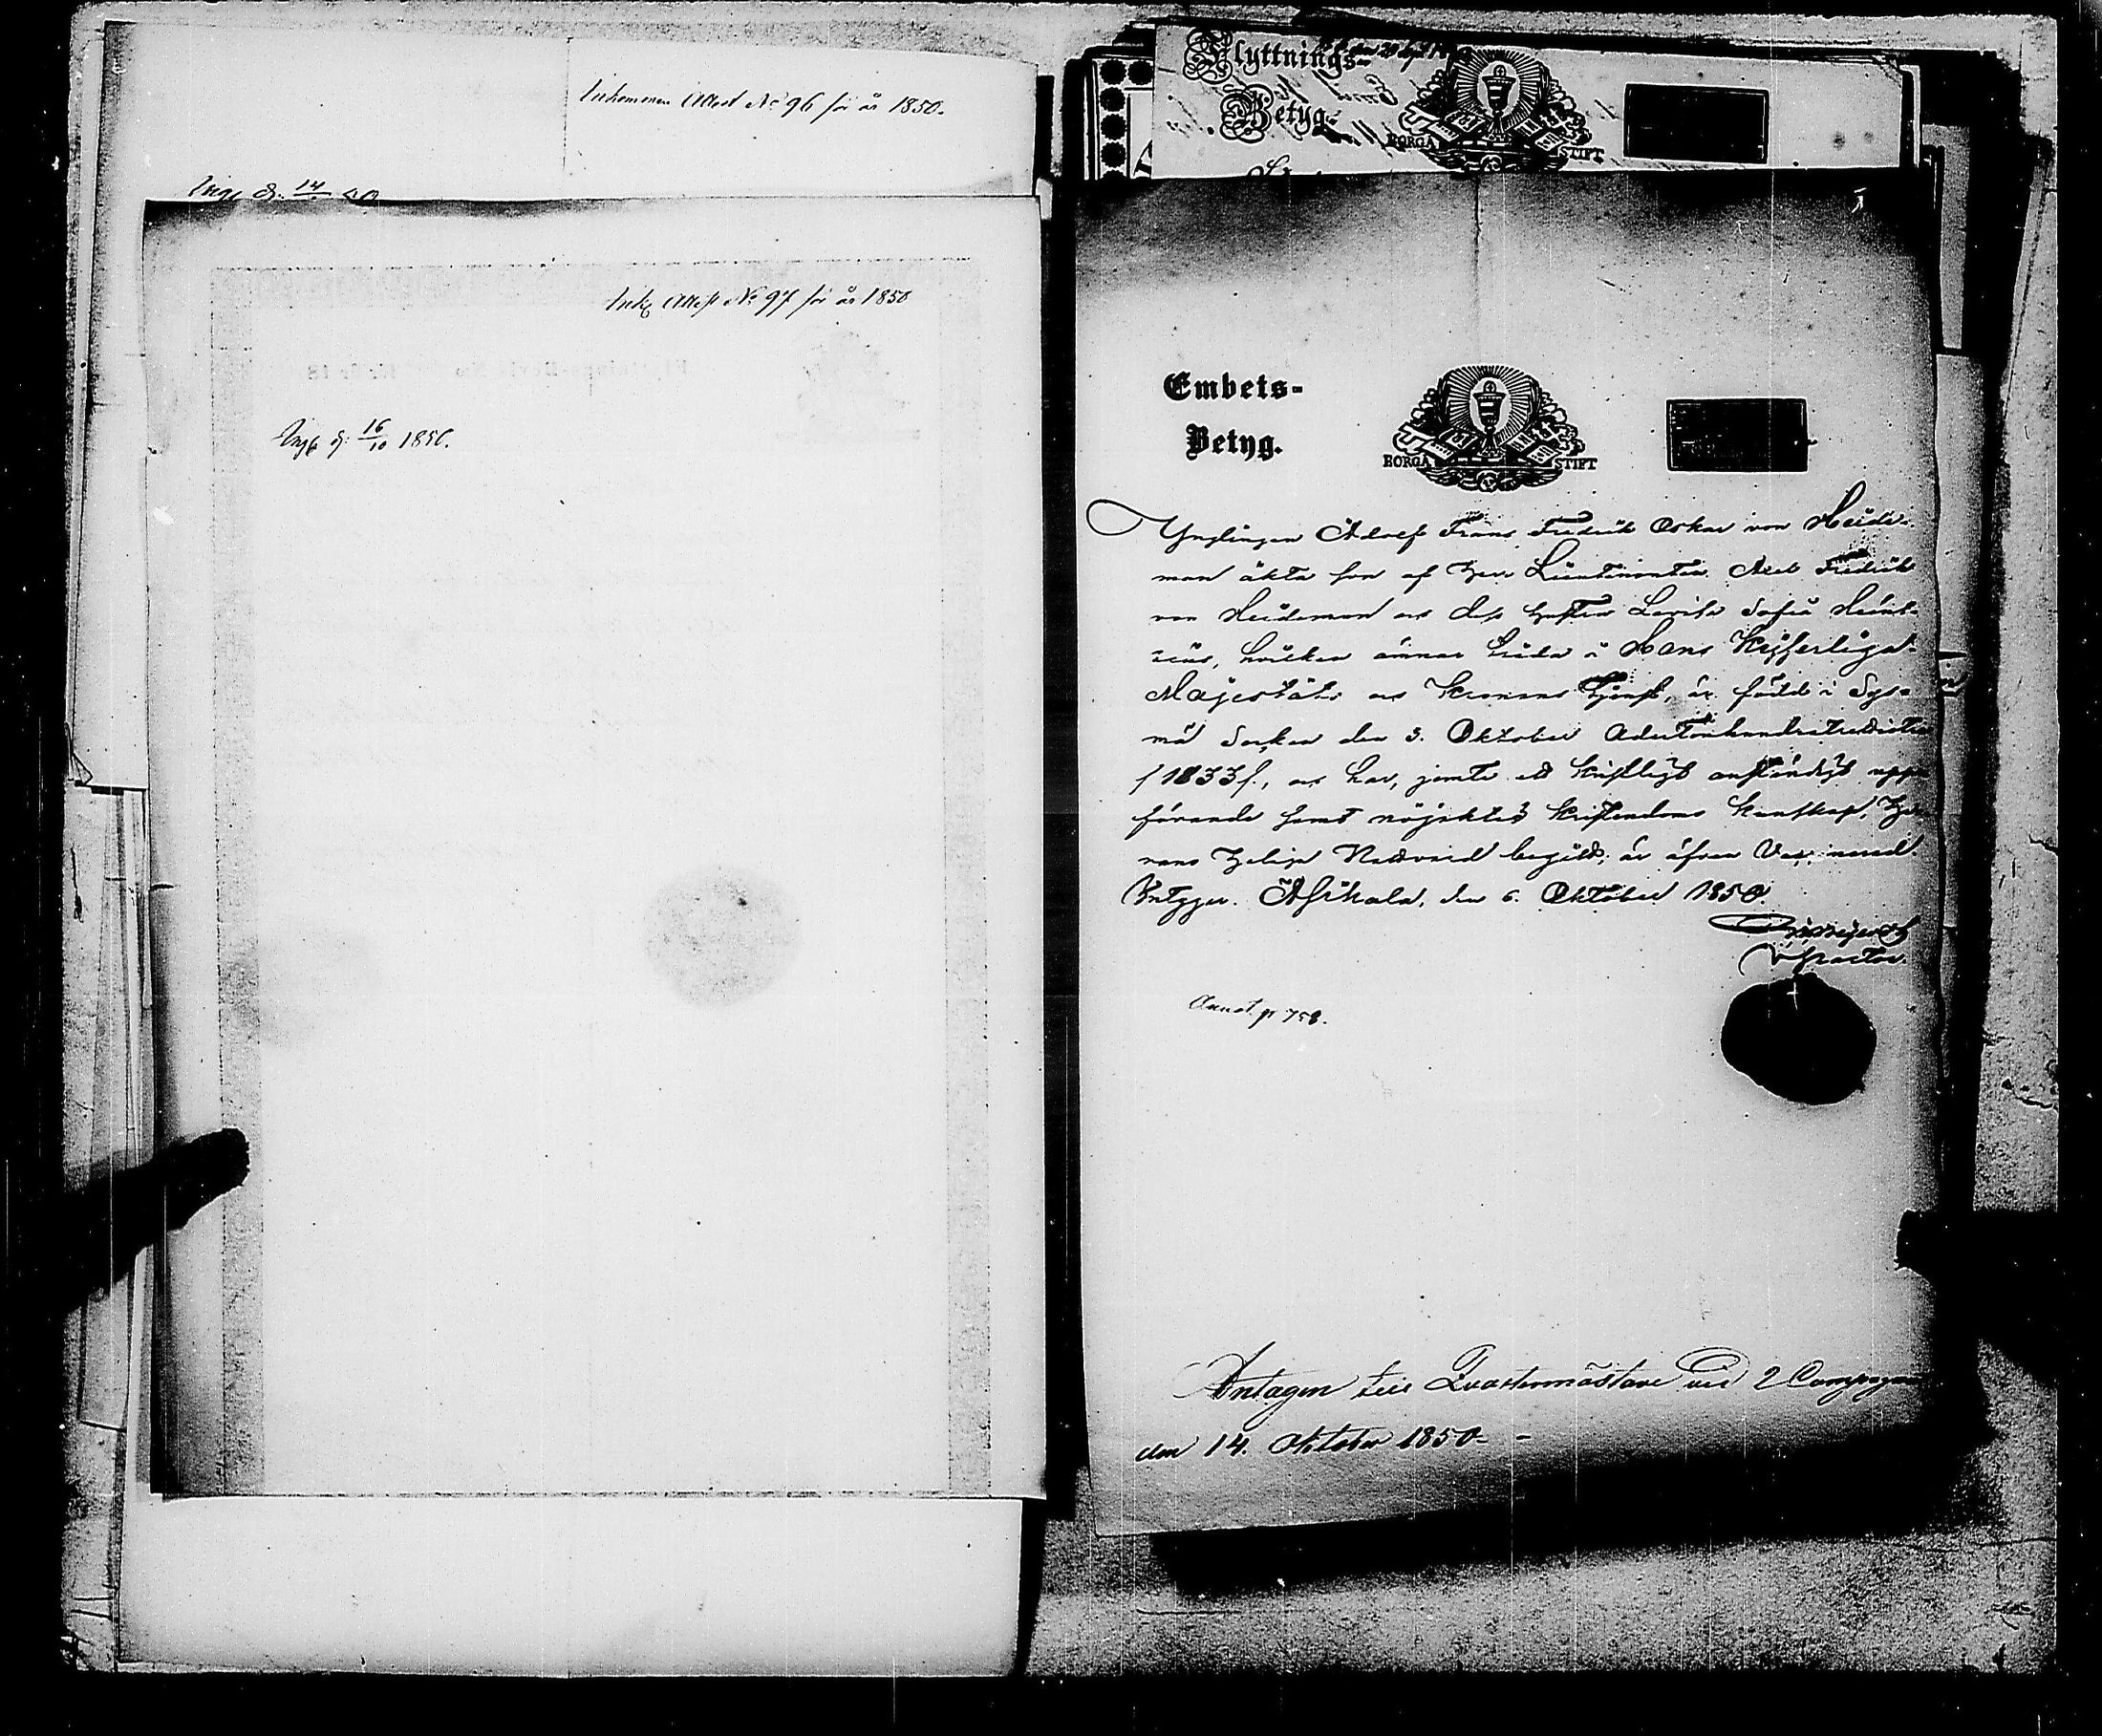 Inkommen Attest No 96 för år 1850.
Ingf d. 14
Inkg Attest No 97 för år 1850
Ingf d. 16/10 1850.
Flyttnings-
Betyg.
BORGÅ STIFT
Embets-
Betyg.
BORGÅ STIFT
Ynglingen Adolf Frans Fredrik Oskar von Heide-
man äkta son af Herr Lieutenanten Axel Fredrik
von Heideman och dess hustru Lovisa Sofia
hvilken ämnar träda i Hans Kejserliga
Majestäts och Kronans tjenst, är född i Sys-
mä Socken den 3. Oktober Adertonhundratrettiotre
/1833/, och har, jemte ett kristligt anständigt upp-
förande samt nöjaktig kristendoms kunskap, Her-
rans Heliga Nattvard begått; är äfven Vaccinerad.
Betygar. Asikkala, den 6. Oktober 1850.
Annot. p 758.
Antagen till Qvartermästare vid 2 Compagni
den 14. Oktober 1850. -